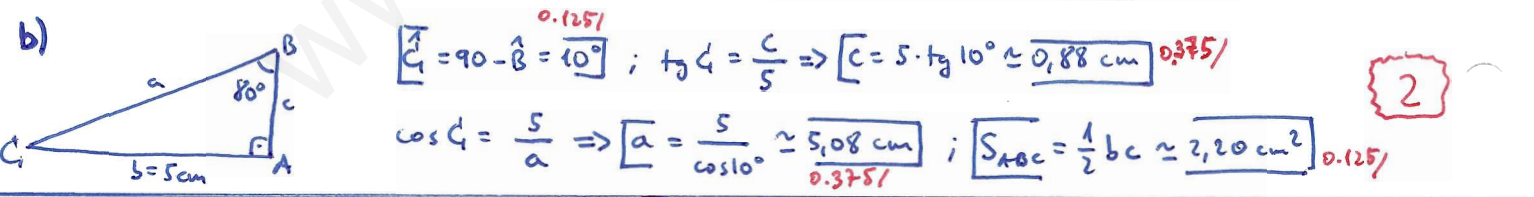 b)
B
a
80°
c
C
b=5cm
A
0.125/
Ĉ = 90 - B̂ = 10° ; tg C = c/5 => c = 5·tg 10° ≃ 0,88 cm 0.375/
cos C = 5/a => a = 5/cos10° ≃ 5,08 cm ; S_ABC = 1/2 bc ≃ 2,20 cm² 0.125/
0.375/
2